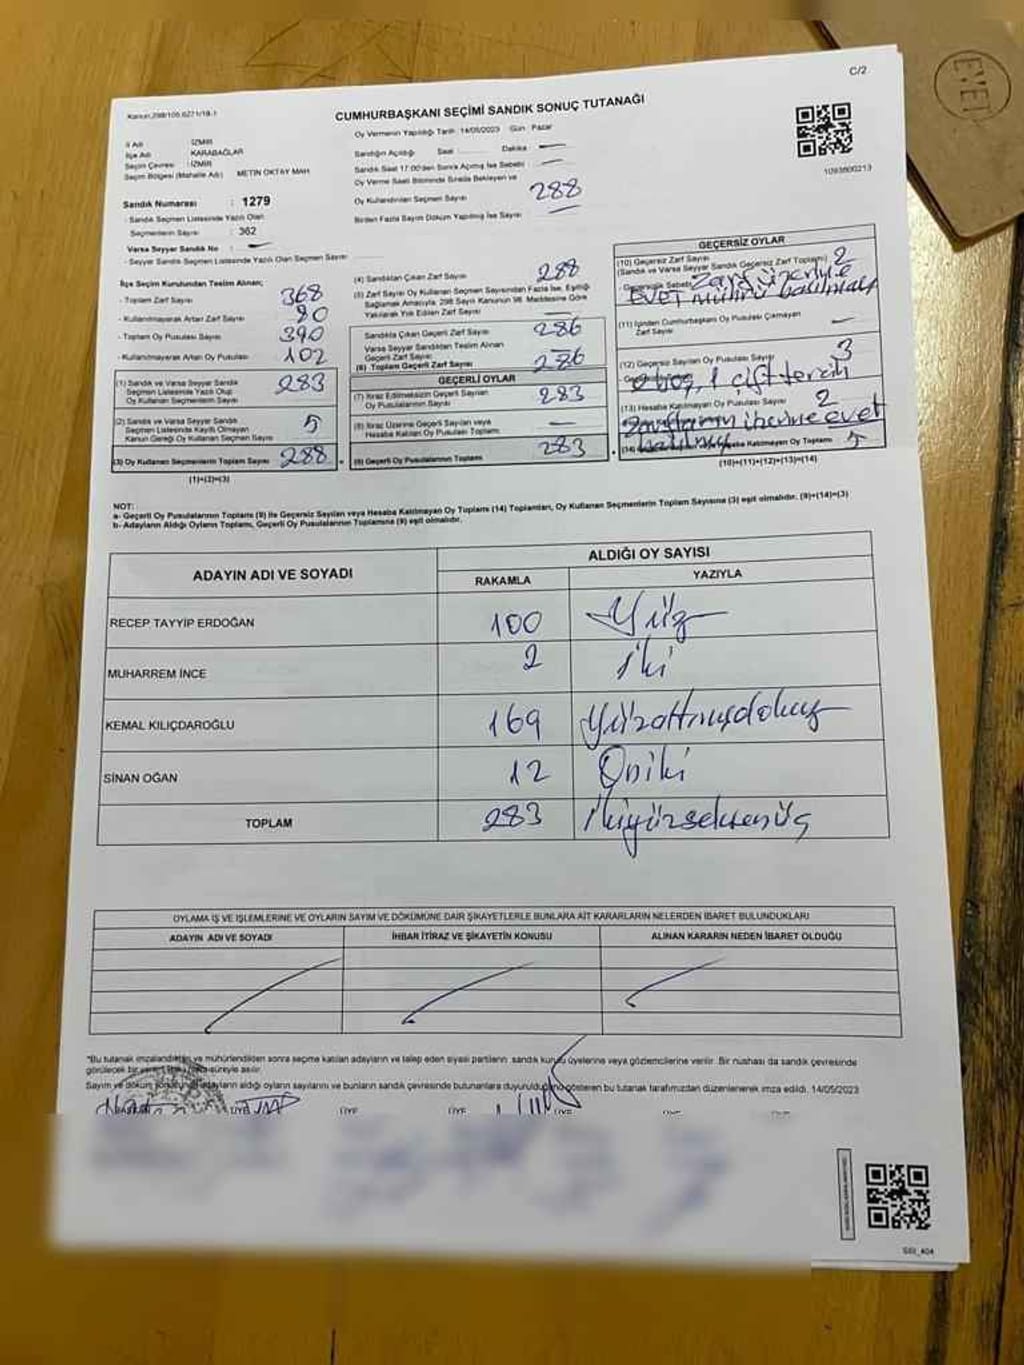 C/2
EVET
Kanun:298/105,6271/18-1
CUMHURBAŞKANI SEÇİMİ SANDIK SONUÇ TUTANAĞI
Oy Vermenin Yapıldığı Tarih :14/05/2023 Gün : Pazar
İl Adı : İZMİR
İlçe Adı : KARABAĞLAR
Seçim Çevresi : İZMİR
Seçim Bölgesi (Mahalle Adı) METİN OKTAY MAH.
Sandığın Açıldığı Saat : Dakika :
Sandık Saat 17:00'den Sonra Açılmış İse Sebebi :
Oy Verme Saati Bitiminde Sırada Bekleyen ve
Oy Kullandırılan Seçmen Sayısı 288
Birden Fazla Sayım Döküm Yapılmış İse Sayısı
1093800213
Sandık Numarası : 1279
- Sandık Seçmen Listesinde Yazılı Olan
Seçmenlerin Sayısı : 362
Varsa Seyyar Sandık No :
- Seyyar Sandık Seçmen Listesinde Yazılı Olan Seçmen Sayısı
İlçe Seçim Kurulundan Teslim Alınan;
- Toplam Zarf Sayısı 368
- Kullanılmayarak Artan Zarf Sayısı 80
- Toplam Oy Pusulası Sayısı 390
- Kullanılmayarak Artan Oy Pusulası 102
(1) Sandık ve Varsa Seyyar Sandık
Seçmen Listesinde Yazılı Olup
Oy Kullanan Seçmenlerin Sayısı 283
(2) Sandık ve Varsa Seyyar Sandık
Seçmen Listesinde Kayıtlı Olmayan
Kanun Gereği Oy Kullanan Seçmen Sayısı 5
(3) Oy Kullanan Seçmenlerin Toplam Sayısı 288
(1)+(2)=(3)
(4) Sandıktan Çıkan Zarf Sayısı 288
(5) Zarf Sayısı Oy Kullanan Seçmen Sayısından Fazla İse, Eşitliği
Sağlamak Amacıyla, 298 Sayılı Kanunun 98. Maddesine Göre
Yakılarak Yok Edilen Zarf Sayısı
Sandıkta Çıkan Geçerli Zarf Sayısı 286
Varsa Seyyar Sandıktan Teslim Alınan
Geçerli Zarf Sayısı
(6) Toplam Geçerli Zarf Sayısı 286
GEÇERLİ OYLAR
(7) İtiraz Edilmeksizin Geçerli Sayılan
Oy Pusulalarının Sayısı 283
(8) İtiraz Üzerine Geçerli Sayılan veya
Hesaba Katılan Oy Pusulaları Toplamı
(9) Geçerli Oy Pusulalarının Toplamı 283
GEÇERSİZ OYLAR
(10) Geçersiz Zarf Sayısı
(Sandık ve Varsa Seyyar Sandık Geçersiz Zarf Toplamı) 2
- Geçersizlik Sebebi: Zarf üzeriyle
EVET mührü basılması
(11) İçinden Cumhurbaşkanı Oy Pusulası Çıkmayan
Zarf Sayısı
(12) Geçersiz Sayılan Oy Pusulası Sayısı 3
2 boş, 1 çift tercih
(13) Hesaba Katılmayan Oy Pusulası Sayısı 2
Zarfların üzerine evet
Hesaba Katılmayan Oy Toplamı 5
(10)+(11)+(12)+(13)=(14)
NOT:
a- Geçerli Oy Pusulasının Toplamı (9) ile Geçersiz Sayılan veya Hesaba Katılmayan Oy Toplamı (14) Toplamları, Oy Kullanan Seçmenlerin Toplam Sayısına (3) eşit olmalıdır. (9)+(14)=(3)
b- Adayların Aldığı Oyların Toplamı, Geçerli Oy Pusulalarının Toplamına (9) eşit olmalıdır.
ADAYIN ADI VE SOYADI
ALDIĞI OY SAYISI
RAKAMLA YAZIYLA
RECEP TAYYİP ERDOĞAN 100 Yüz
MUHARREM İNCE 2 iki
KEMAL KILIÇDAROĞLU 169 Yüzatmışdokuz
SİNAN OĞAN 12 Oniki
TOPLAM 283 ikiyüzseksenüç
OYLAMA İŞ VE İŞLEMLERİNE VE OYLARIN SAYIM VE DÖKÜMÜNE DAİR ŞİKAYETLERLE BUNLARA AİT KARARLARIN NELERDEN İBARET BULUNDUKLARI
ADAYIN ADI VE SOYADI İHBAR İTİRAZ VE ŞİKAYETİN KONUSU ALINAN KARARIN NEDEN İBARET OLDUĞU
*Bu tutanak imzalandıktan ve mühürlendikten sonra seçime katılan adayların ve talep eden siyasi partilerin sandık kurulu üyelerine veya gözlemcilerine verilir. Bir nüshası da sandık çevresinde
görülecek bir yere süreyle asılır.
Sayım ve döküm adayların aldığı oyların sayılarını ve bunların sandık çevresinde bulunanlara duyurulduğunu gösteren bu tutanak tarafımızdan düzenlenerek imza edildi. 14/05/2023
ÜYE ÜYE ÜYE ÜYE
SSI_404